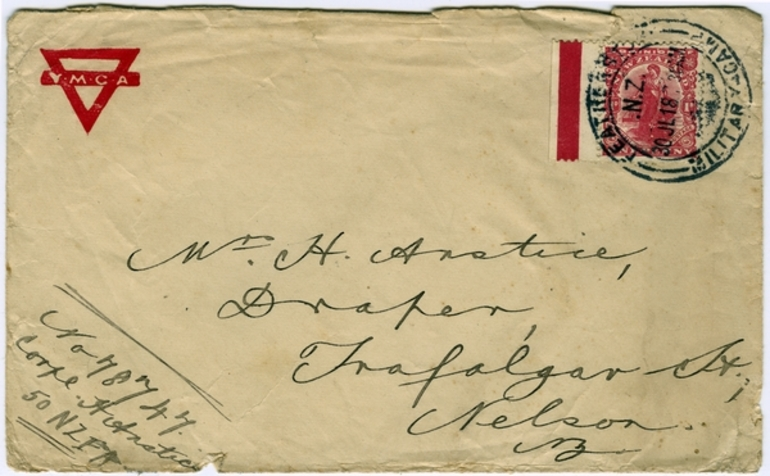 Y·M·C·A
FEATHERST
N.Z.
30 JL 18
MILITARY CAMP
Mr. H. Anstice,
Draper,
Trafalgar St,
Nelson.
NZ
No 78747.
Corpl A Anstice
50 NZEF